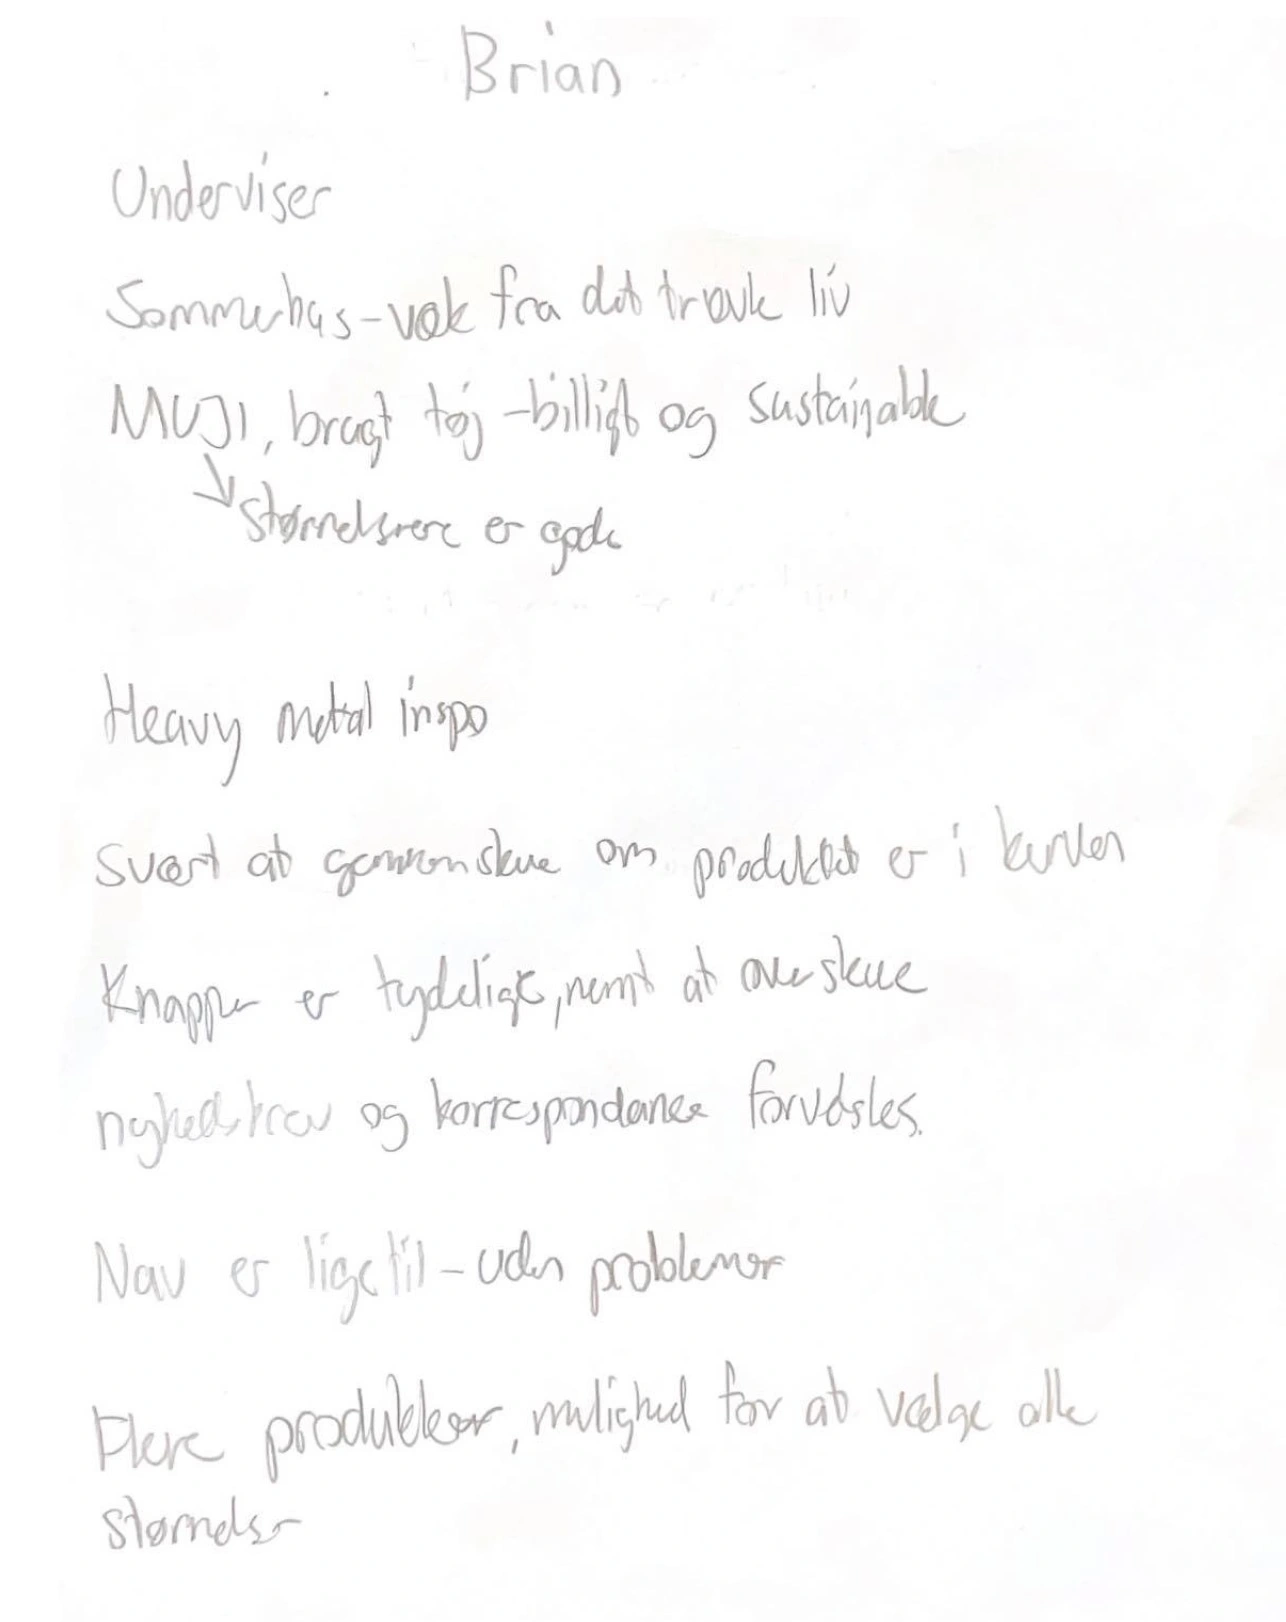 Brian
Underviser
Sommerhus-væk fra det travle liv
MUJI, brugt tøj -billigt og sustainable
↘ størrelserne er gode
Heavy metal inspo
Svært at gennemskue om produktet er i kurven
Knapper er tydelige, nemt at overskue
nyhedsbrev og korrespondance forveksles.
Nav er lige til - uden problemer
Flere produkter, mulighed for at vælge alle
størrelser